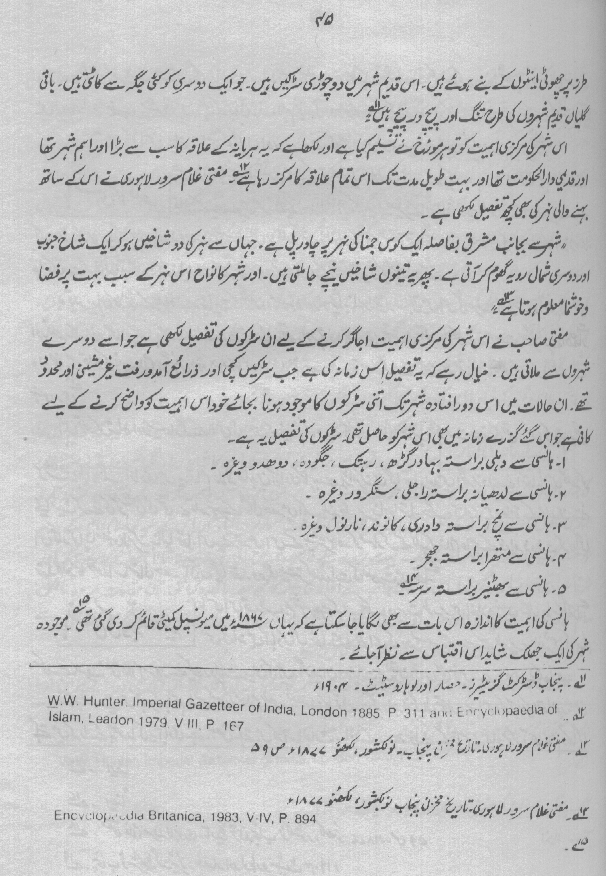 ۴۵
طرز پر چھوٹی اینٹوں کے بنے ہوئے ہیں۔ اس قدیم شہر میں دو چوڑی سڑکیں ہیں۔ جو ایک دوسری کو کئی جگہ سے کاٹتی ہیں۔ باقی
گلیاں قدیم شہروں کی طرح تنگ اور پیچ در پیچ ہیں۔
اس شہر کی مرکزی اہمیت کو تو ہر مورخ نے تسلیم کیا ہے اور لکھا ہے کہ یہ ہریانہ کے علاقہ کا سب سے بڑا اور اہم شہر تھا
اور قدیمی دارالحکومت تھا اور بہت طویل مدت تک اس تمام علاقہ کا مرکز رہا ہے۔ ۱۲؎ مفتی غلام سرور لاہوری نے اس کے ساتھ
بہنے والی نہر کی بھی کچھ تفصیل لکھی ہے۔
"شہر سے بجانب مشرق بفاصلہ ایک کوس جمنا کی نہر پر چادر پل ہے۔ جہاں سے نہر کی دو شاخیں ہو کر ایک شاخ جنوب
اور دوسری شمال رویہ گھوم کر آتی ہے۔ پھر یہ تینوں شاخیں نیچے جا ملتی ہیں۔ اور شہر کا نواح اس نہر کے سبب بہت پر فضا
و خوشنما معلوم ہوتا ہے۔ ۱۳؎
مفتی صاحب نے اس شہر کی مرکزی اہمیت اجاگر کرنے کے لیے ان سڑکوں کی تفصیل لکھی ہے جو اسے دوسرے
شہروں سے ملاتی ہیں۔ خیال رہے کہ یہ تفصیل اس زمانہ کی ہے جب سڑکیں کچی اور ذرائع آمدورفت غیر مشینی اور محدود
تھے۔ ان حالات میں اس دور افتادہ شہر تک اتنی سڑکوں کا موجود ہونا بجائے خود اس اہمیت کو واضح کرنے کے لیے
کافی ہے جو اس گئے گذرے زمانہ میں بھی اس شہر کو حاصل تھی۔ سڑکوں کی تفصیل یہ ہے۔
۱۔ ہانسی سے دہلی براستہ بہادر گڑھ، رہتک، جگودہ، دوھدو وغیرہ۔
۲۔ ہانسی سے لدھیانہ براستہ راجلی، سنگرور وغیرہ۔
۳۔ ہانسی سے نمچ براستہ دادری، کانوند، نارنول وغیرہ۔
۴۔ ہانسی سے متھرا براستہ جھجر۔
۵۔ ہانسی سے بھٹنیر براستہ سرسہ۔ ۱۴؎
ہانسی کی اہمیت کا اندازہ اس بات سے بھی لگایا جا سکتا ہے کہ یہاں ۱۸۶۷ء میں میونسپل کمیٹی قائم کر دی گئی تھی۔ ۱۵؎ موجودہ
شہر کی ایک جھلک شاید اس اقتباس سے نظر آجائے۔
۱۱؎ پنجاب ڈسٹرکٹ گزیٹیرز۔ حصار اور لوہارو سٹیٹ۔ ۱۹۰۴ء
W.W. Hunter. Imperial Gazetteer of India, London 1885 P. 311 and Encyclopaedia of ۱۲؎
Islam, Leardon 1979. V III, P. 167
۱۳؎ مفتی غلام سرور لاہوری۔ تاریخ مخزن پنجاب۔ نولکشور، لکھنؤ ۱۸۷۷ء ص ۵۹
۱۴؎ مفتی غلام سرور لاہوری۔ تاریخ مخزن پنجاب نولکشور، لکھنؤ ۱۸۷۷ء
Encyclopaedia Britanica, 1983, V-IV, P. 894
۱۵؎